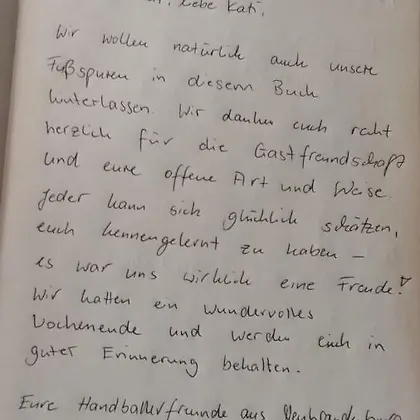 liebe Kati,
Wir wollen natürlich auch unsere
Fußspuren in diesem Buch
hinterlassen. Wir danken euch recht
herzlich für die Gastfreundschaft
und eure offene Art und Weise.
Jeder kann sich glücklich schätzen,
euch kennengelernt zu haben –
es war uns wirklich eine Freude!
Wir hatten ein wundervolles
Wochenende und werden euch in
guter Erinnerung behalten.
Eure Handballerfreunde aus